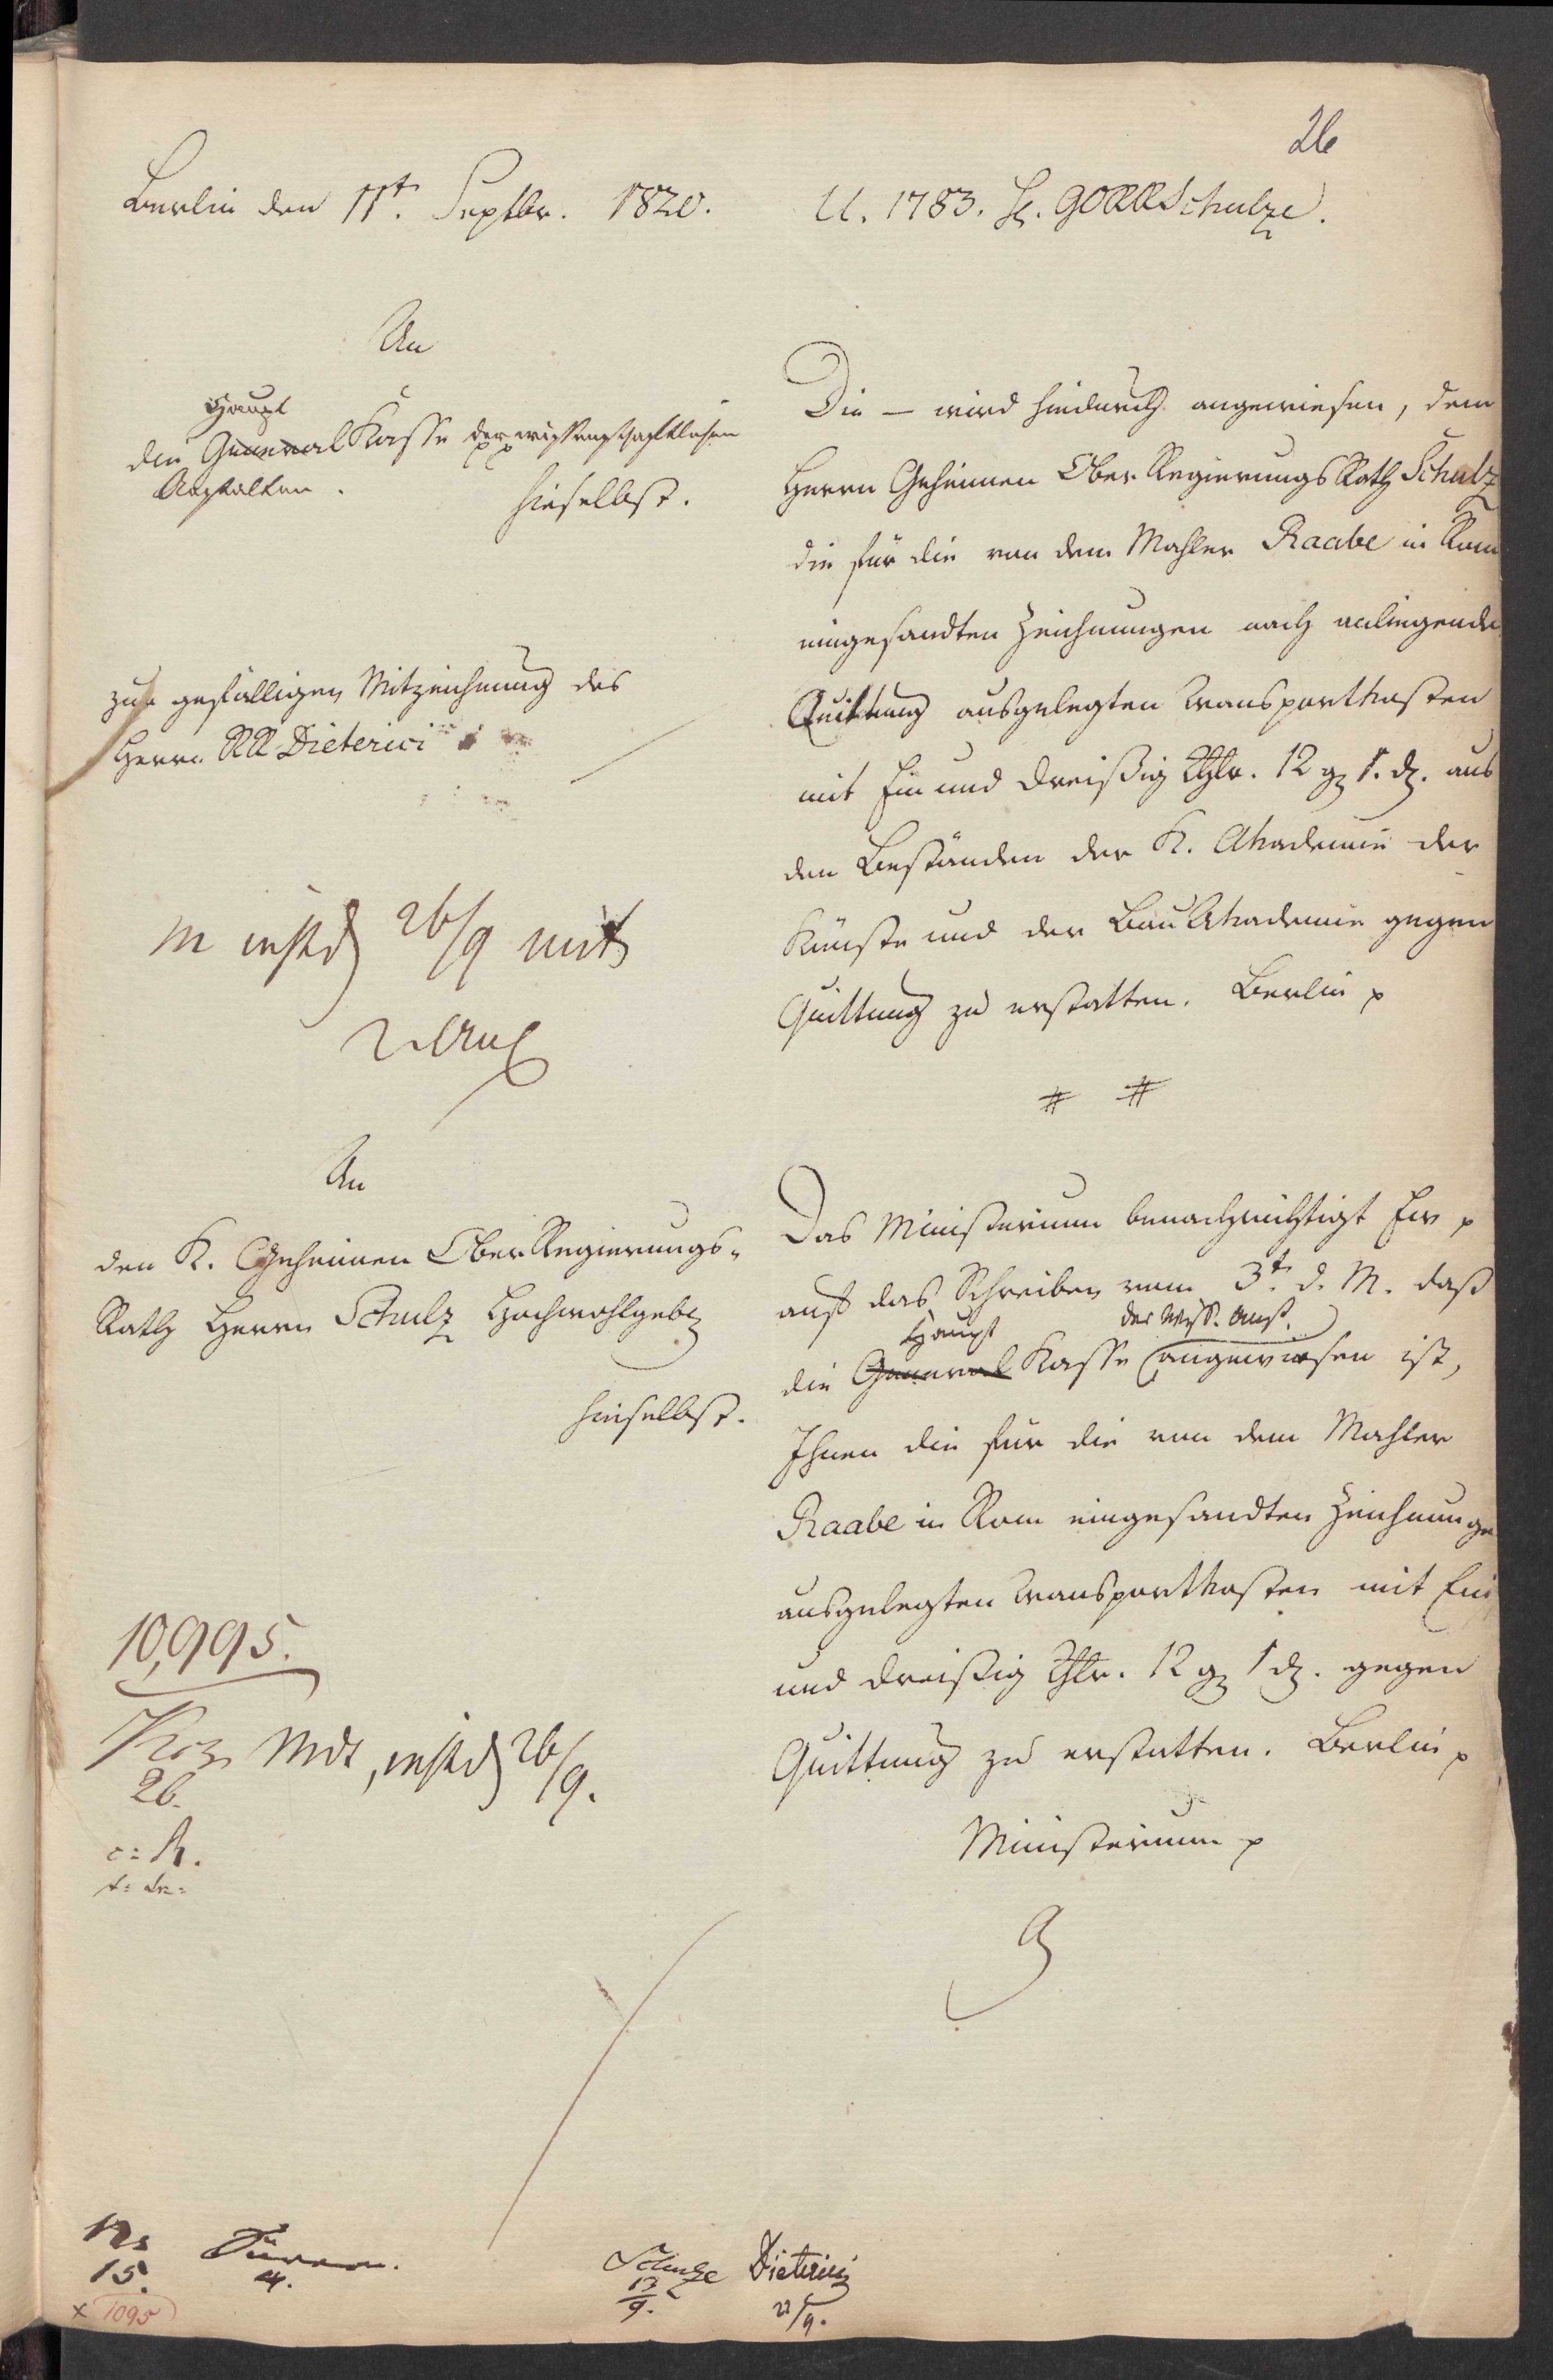 26
Berlin den 11t. Septbr. 1820.
U. 1783. H. GORR Schulze.
An
Haupt
die General Kasse der wissenschaftlichen
Anstalten.
hieselbst.
zur gefälligen Mitzeichnung des
Herrn RR Dieterici
26/9 mit
Die — wird hiedurch angewiesen, dem
Herrn Geheimen Ober Regierungs Rath Schulz
die für die von dem Mahler Raabe in Rom
eingesandten Zeichnungen nach anliegender
Quittung ausgelegten Transportkosten
mit Ein und dreißig Thlr. 12 g 1. d. aus
den Beständen der K. Akademie der
Künste und der Bau Akademie gegen
Quittung zu erstatten. Berlin p
# #
An
den K. Geheimen Ober Regierungs-
Rath Herrn Schulz Hochwohlgeb
hieselbst.
Das Ministerium benachrichtigt Ew p
auf das Schreiben vom 3t. d. M. daß
Haupt der Wiss. Anst.
die General Kasse angewiesen ist,
Ihnen die für die von dem Mahler
Raabe in Rom eingesandten Zeichnungen
ausgelegten Transportkosten mit Ein
und dreißig Thlr. 12 g 1 d. gegen
Quittung zu erstatten. Berlin p
Ministerium p
10,995.
26.
26/9.
15.
Schulze
13/9.
Dieterici
22/9.
x 1095